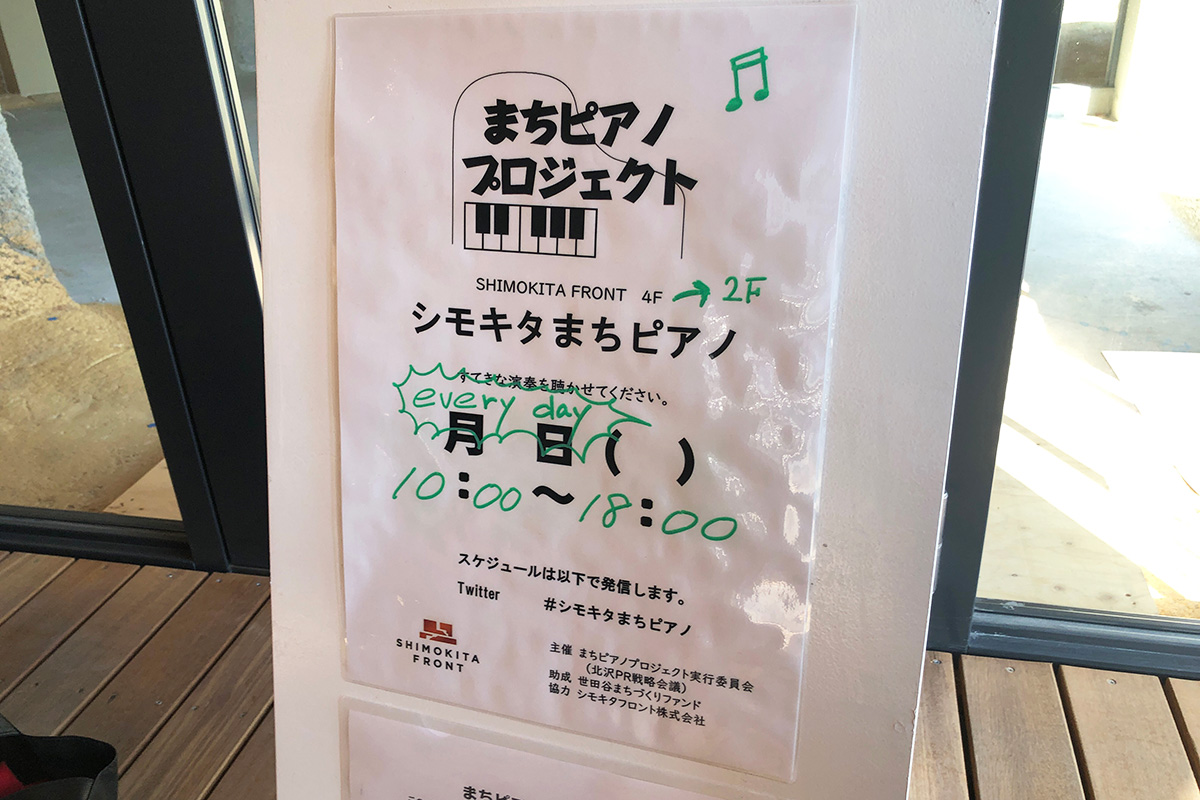 まちピアノ
プロジェクト
SHIMOKITA FRONT 4F → 2F
シモキタまちピアノ
すてきな演奏を聴かせてください。
every day
月 日( )
10:00～18:00
スケジュールは以下で発信します。
Twitter #シモキタまちピアノ
SHIMOKITA
FRONT
主催 まちピアノプロジェクト実行委員会
(北沢PR戦略会議)
助成 世田谷まちづくりファンド
協力 シモキタフロント株式会社